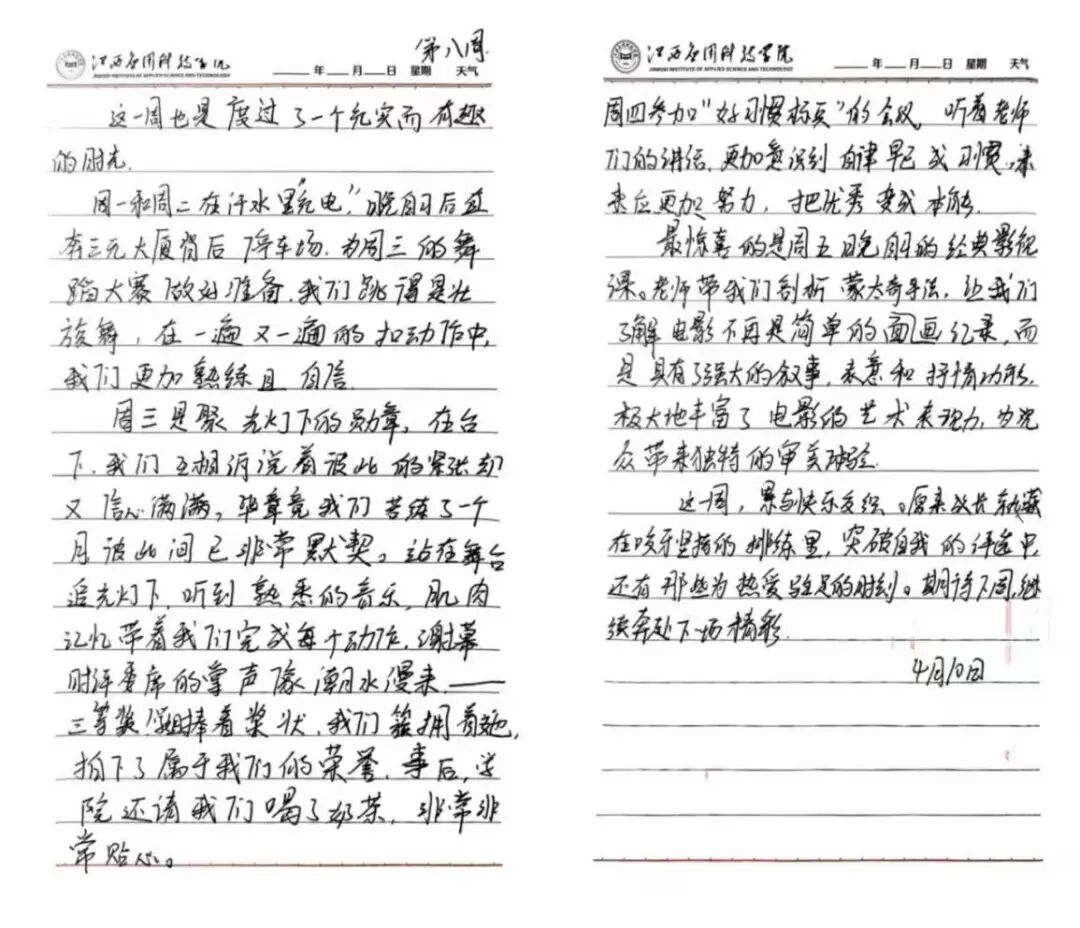 第八周
江西应用科技学院
JIANGXI INSTITUTE OF APPLIED SCIENCE AND TECHNOLOGY
年 月 日 星期 天气
这一周也是度过了一个充实而有趣
的时光.
周一和周二在汗水里"充电",晚自习后直
奔三元大厦背后停车场.为周三的舞
蹈大赛做好准备.我们跳得是壮
族舞,在一遍又一遍的扣动作中,
我们更加熟练且自信.
周三是聚光灯下的勋章,在台
下.我们互相诉说着彼此的紧张却
又信心满满。毕竟我们苦练了一个
月彼此间已非常默契。站在舞台
追光灯下.听到熟悉的音乐,肌肉
记忆带着我们完成每个动作.谢幕
时评委席的掌声像潮水漫来——
三等奖!姐捧着奖状,我们簇拥着她,
拍下了属于我们的荣誉.事后,学
院还请我们喝了奶茶,非常非
常贴心。
江西应用科技学院
JIANGXI INSTITUTE OF APPLIED SCIENCE AND TECHNOLOGY
年 月 日 星期 天气
周四参加"好习惯标兵"的会议,听着老师
们的讲话,更加意识到自律早已成习惯。未
来应更加努力,把优秀变成本能.
最惊喜的是周五晚自习的经典影视
课。老师带我们剖析蒙太奇手法,让我们
了解电影不再是简单的画面纪录,而
是具有了强大的叙事,表意和抒情功能,
极大地丰富了电影的艺术表现力,为观
众带来独特的审美体验.
这一周,累与快乐交织。原来成长就藏
在咬牙坚持的排练里,突破自我的评选中,
还有那些为热爱驻足的时刻。期待下周,继
续奔赴下一场精彩.
4月10日